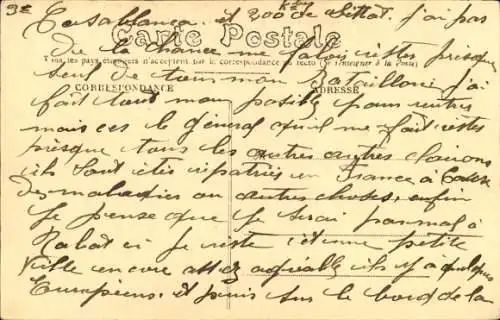 Casablanca et 200 de Settat. j'ai pas
Carte Postale
de la chance me falloir rester presque
Tous les pays étrangers n'acceptent pas la correspondance au recto (Se renseigner à la Poste)
seul de tous mon Bataillon j'ai
CORRESPONDANCE
ADRESSE
fait tout mon posible pour rentrer
mais ces le général qui me fait rester
presque tous les autres autres clairons
ils sont etes repatriés en France à cause
des maladies ou autres choses, enfin
Je pense que je serai pas mal à
Rabat ci je reste c'est une petite
Ville encore assez agréable ils y à quelques
Européens. et puis sur le bord de la